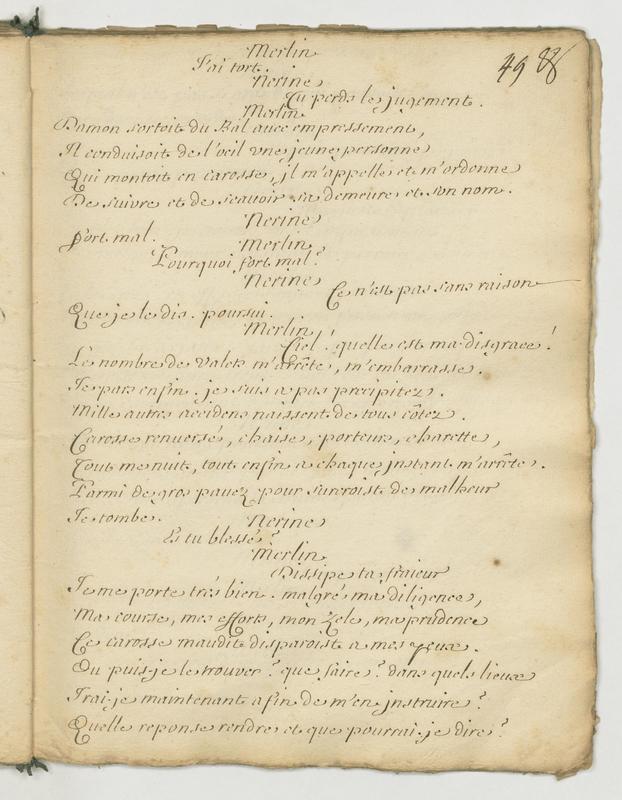 49 88
Merlin
J'ai tort.
Nerine
Tu perds le jugement.
Merlin
Damon sortoit du Bal avec empressement,
Il conduisoit de l'oeil vne jeune personne
Qui montoit en carosse, il m'appelle et m'ordonne
De suivre et de sçauoir sa demeure et son nom.
Nerine
fort mal.
Merlin
Pourquoi fort mal?
Nerine
Ce n'est pas sans raison
Que je le dis. poursui.
Merlin
Ciel! quelle est ma disgrace!
Le nombre de Valets m'arrête, m'embarrasse.
Je pars enfin. je suis a pas precipitez.
Mille autres accidens naissent de tous côtez.
Carosse renuersé, chaise, porteur, charette,
Tout me nuit, tout enfin a chaque instant m'arrête.
Parmi de gros pauez pour surcroist de malheur
Je tombe.
Nerine
Es tu blessé?
Merlin
Dissipe ta fraieur
Je me porte trés bien. malgré ma diligence,
Ma course, mes efforts, mon zele, ma prudence
Ce carosse maudit disparoist a mes yeux.
Ou puis-je le trouver? que faire? dans quels lieux
Irai-je maintenant afin de m'en jnstruire?
Quelle reponse rendre et que pourrai-je dire?